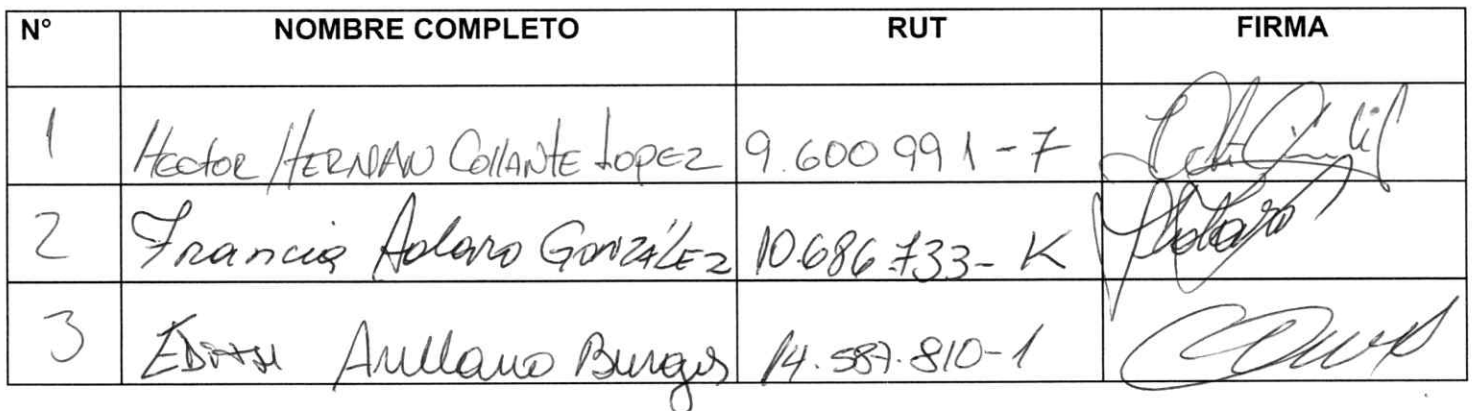 N° NOMBRE COMPLETO RUT FIRMA
1 Hector HERNAN CollANTE Lopez 9.600991-7
2 Francia Adaro GONZÁLEZ 10.686.733-K
3 EDITH Arellano Burgos 14.587.810-1